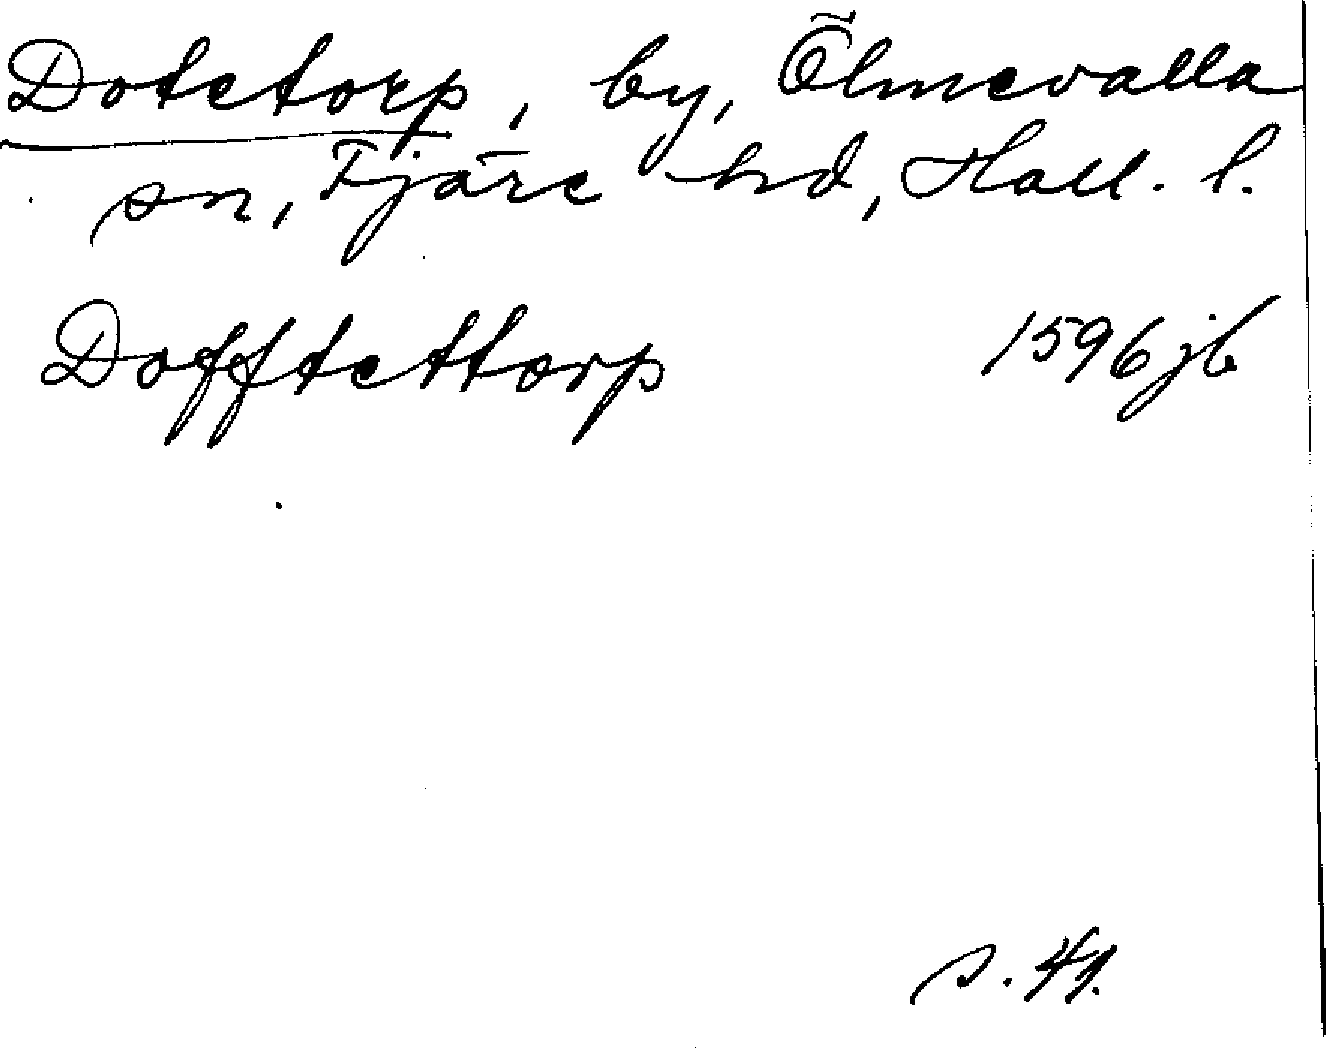 Dotetorp, by, Ölmevalla
sn, Fjäre hd, Hall. l.
Dofftettorp 1596 jb
s. 41.